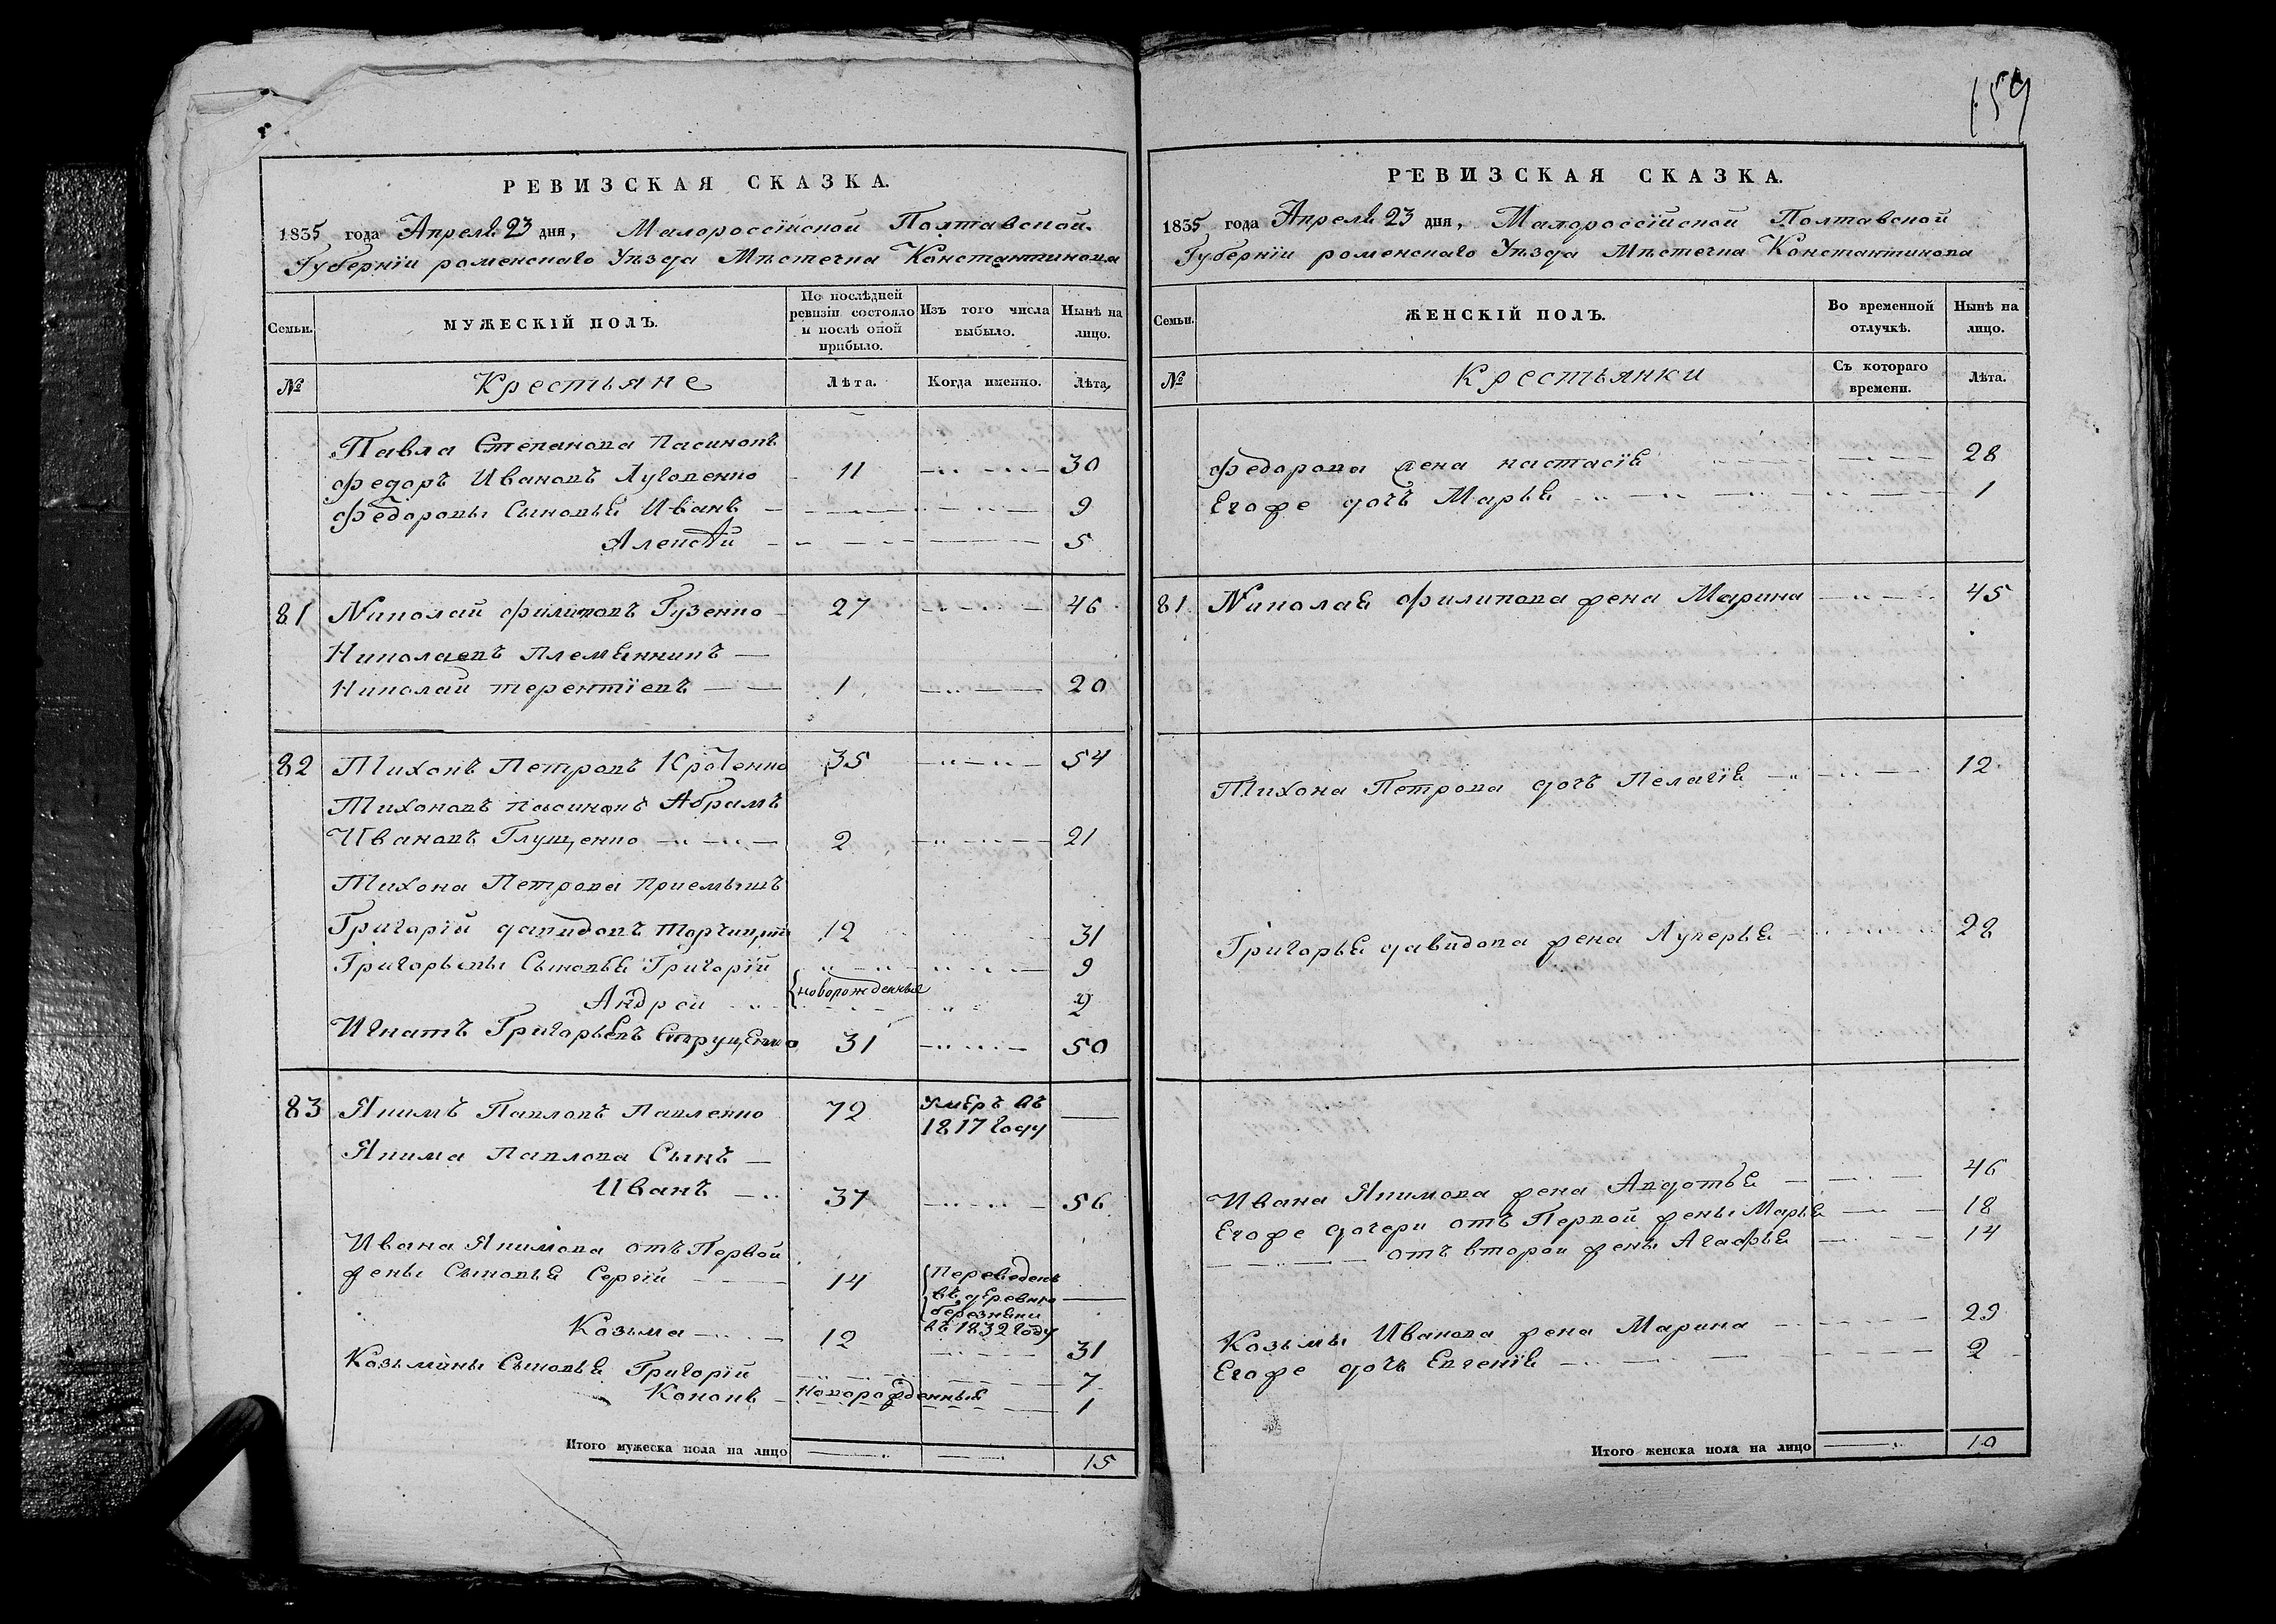 159
РЕВИЗСКАЯ СКАЗКА.
1835 года Апреля 23 дня, Малороссійской Полтавской
Губерніи роменскаго Уѣзда Мѣстечка Константинова
Семьи.
МУЖЕСКІЙ ПОЛЪ.
По послѣдней ревизіи состояло и послѣ оной прибыло.
Изъ того числа выбыло.
Нынѣ на лицо.
№
Крестьяне
Лѣта.
Когда именно.
Лѣта.
Павла Степанова пасинокъ
Федоръ Ивановъ Луговенко 11 30
Федоровы Сыновья Иванъ 9
Алексѣй 5
81 Николай Филиповъ Гузенко 27 46
Николаевъ племянникъ
Николай терентіевъ 1 20
82 Тихонъ Петровъ 35 54
Тихоновъ пасинокъ Абрамъ
Ивановъ Глущенко 2 21
Тихона Петрова приемышъ
Григорій давидовъ 12 31
Григорьевы Сыновья Григорій 9
новорожденные
Андрей 2
Игнатъ Григорьевъ 31 50
83 Якимъ Павловъ Павленко 72 умеръ въ 1817 году
Якима Павлова Сынъ
Иванъ 37 56
Ивана Якимова отъ Первой
жены Сыновья Сергій 14 Переведенъ въ деревню березняки въ 1832 году
Козьма 12 31
Козьмины Сыновья Григорій 7
Кононъ новорожденные 1
Итого мужеска пола на лицо 15
РЕВИЗСКАЯ СКАЗКА.
1835 года Апреля 23 дня, Малороссійской Полтавской
Губерніи роменскаго Уѣзда Мѣстечка Константинова
Семьи.
ЖЕНСКІЙ ПОЛЪ.
Во временной отлучкѣ.
Нынѣ на лицо.
№
Крестьянки
Съ котораго времени.
Лѣта.
Федорова жена настасія 28
Егоже дочь Марья 1
81 Николая Филипова жена Марина 45
Тихона Петрова дочь Пелагія 12
Григорья давидова жена Лукерья 28
Ивана Якимова жена Авдотья 46
Егоже дочери отъ Первой жены Марья 18
отъ второй жены Агафья 14
Козьмы Иванова жена Марина 29
Егоже дочь Евгенія 2
Итого женска пола на лицо 10